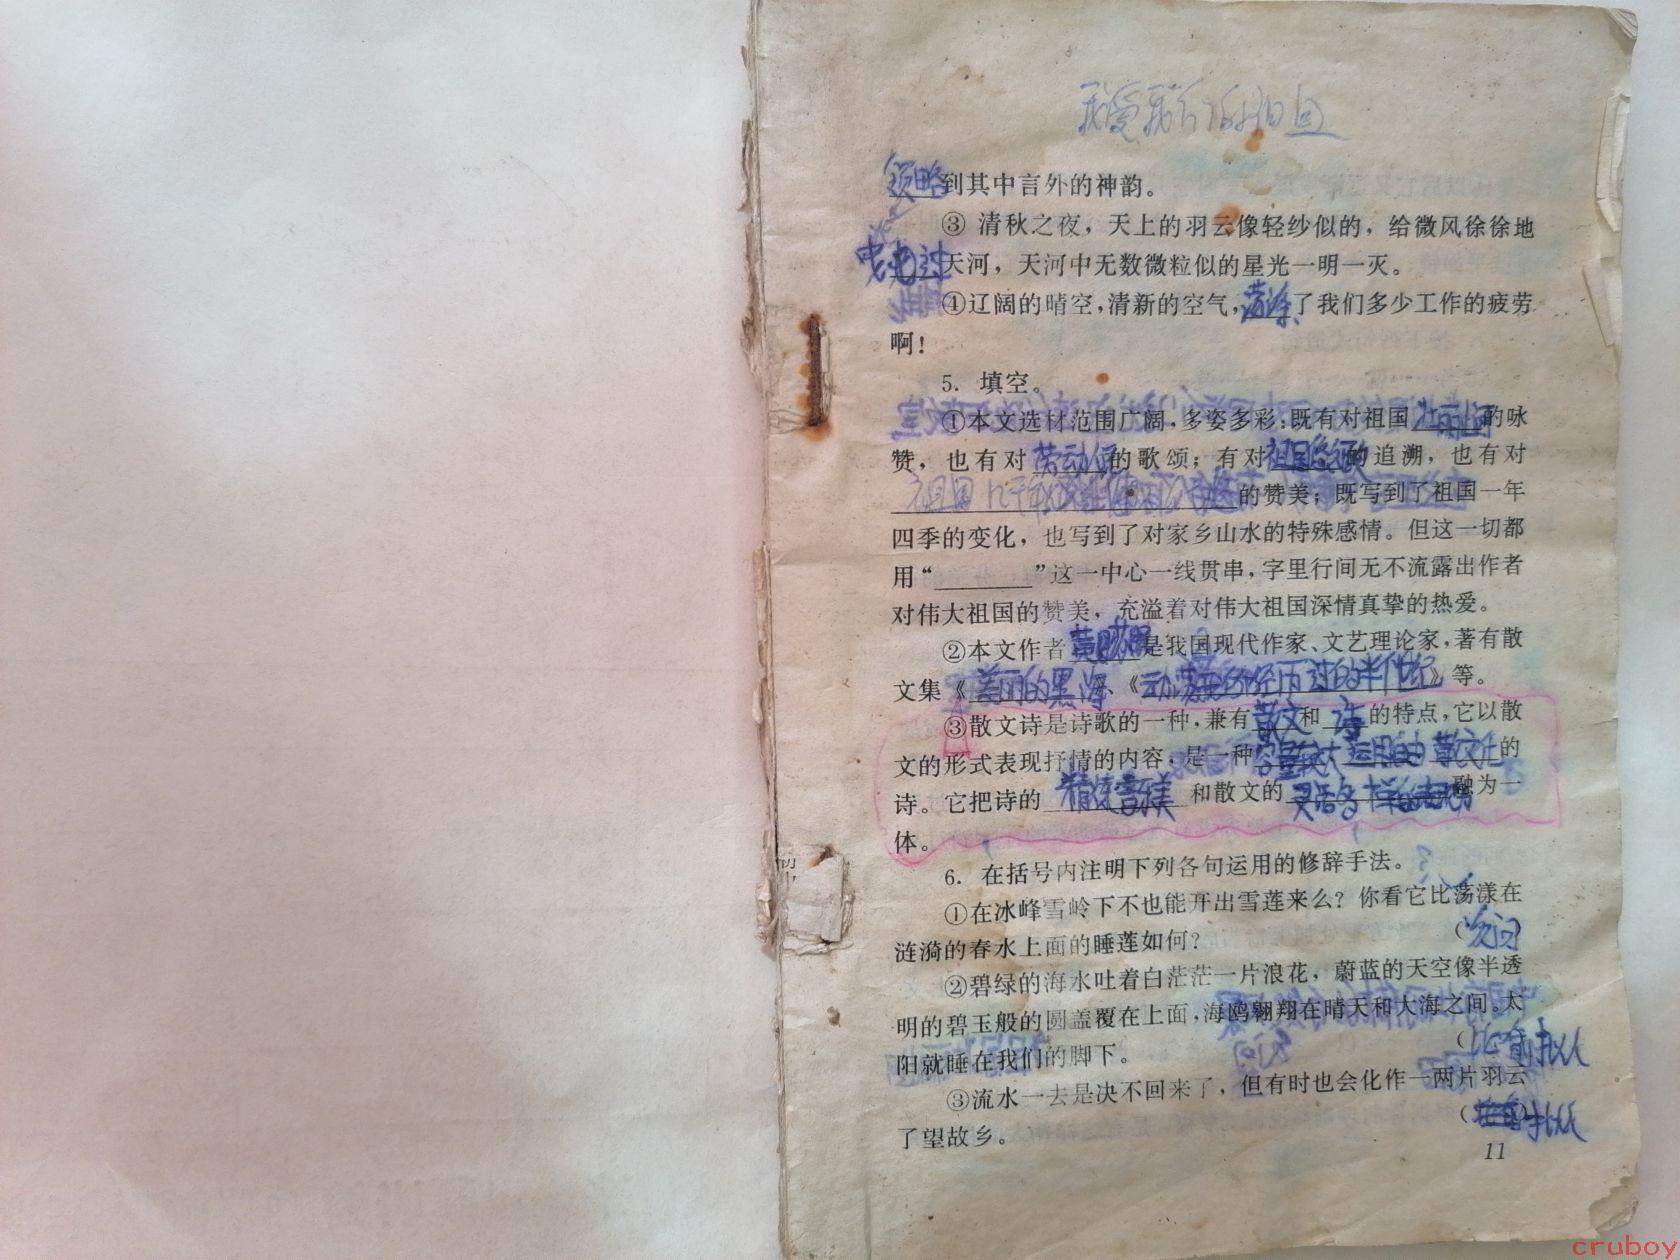 我爱我们的祖国
领略到其中言外的神韵。
③ 清秋之夜，天上的羽云像轻纱似的，给微风徐徐地
天河，天河中无数微粒似的星光一明一灭。
④辽阔的晴空，清新的空气，荡涤了我们多少工作的疲劳
啊！
5. 填空。
①本文选材范围广阔，多姿多彩；既有对祖国的咏
赞，也有对劳动人民的歌颂；有对祖国的追溯，也有对
祖国几千年的赞美；既写到了祖国一年
四季的变化，也写到了对家乡山水的特殊感情。但这一切都
用“______”这一中心一线贯串，字里行间无不流露出作者
对伟大祖国的赞美，充溢着对伟大祖国深情真挚的热爱。
②本文作者黄药眠是我国现代作家、文艺理论家，著有散
文集《美丽的黑海》、《动荡：我所经历过的半世纪》等。
③散文诗是诗歌的一种，兼有散文和诗的特点，它以散
文的形式表现抒情的内容，是一种容量较大运用自由散文化的
诗。它把诗的精炼音乐美和散文的灵活多样的融为一
体。
6. 在括号内注明下列各句运用的修辞手法。
①在冰峰雪岭下不也能开出雪莲来么？你看它比荡漾在
涟漪的春水上面的睡莲如何？（反问）
②碧绿的海水吐着白茫茫一片浪花，蔚蓝的天空像半透
明的碧玉般的圆盖覆在上面，海鸥翱翔在晴天和大海之间。太
阳就睡在我们的脚下。（比喻拟人
③流水一去是决不回来了，但有时也会化作一两片羽云
了望故乡。（拟人
11
cruboy